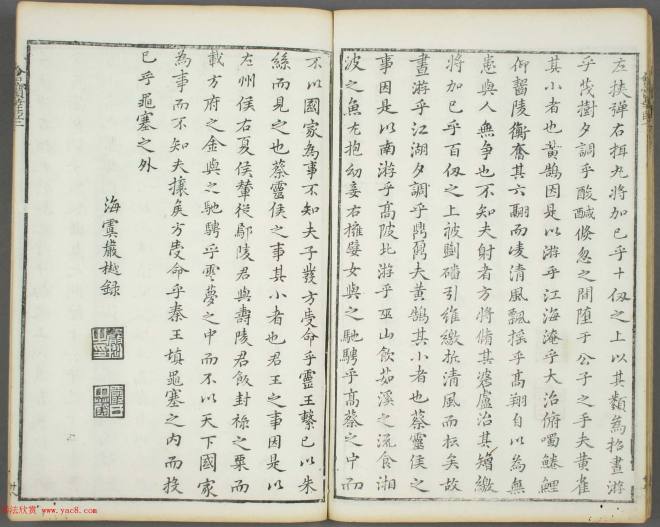 左挾彈右攝丸將加己乎十仞之上以其類為招晝游
乎茂樹夕調乎酸醎倐忽之間墮于公子之手夫黃雀
其小者也黃鵠因是以游乎江海淹乎大沼俯噣鱔鯉
仰齧陵衡奮其六翮而凌清風飄搖乎高翔自以為無
患與人無爭也不知夫射者方將脩其碆盧治其矰繳
將加己乎百仞之上被礛磻引維繳折清風而抎矣故
晝游乎江湖夕調乎鼎鼐夫黃鵠其小者也蔡靈侯之
事因是以南游乎高陂北游乎巫山飲茹溪之流食湘
波之魚左抱幼妾右擁嬖女與之馳騁乎高蔡之中而
不以國家為事不知夫子發方受命乎靈王繫己以朱
絲而見之也蔡靈侯之事其小者也君王之事因是以
左州侯右夏侯輦從鄢陵君與壽陵君飯封祿之粟而
載方府之金與之馳騁乎雲夢之中而不以天下國家
為事而不知夫攘矦方受命乎秦王填黽塞之內而投
己乎黽塞之外
海虞嚴樾錄
www.yac8.com